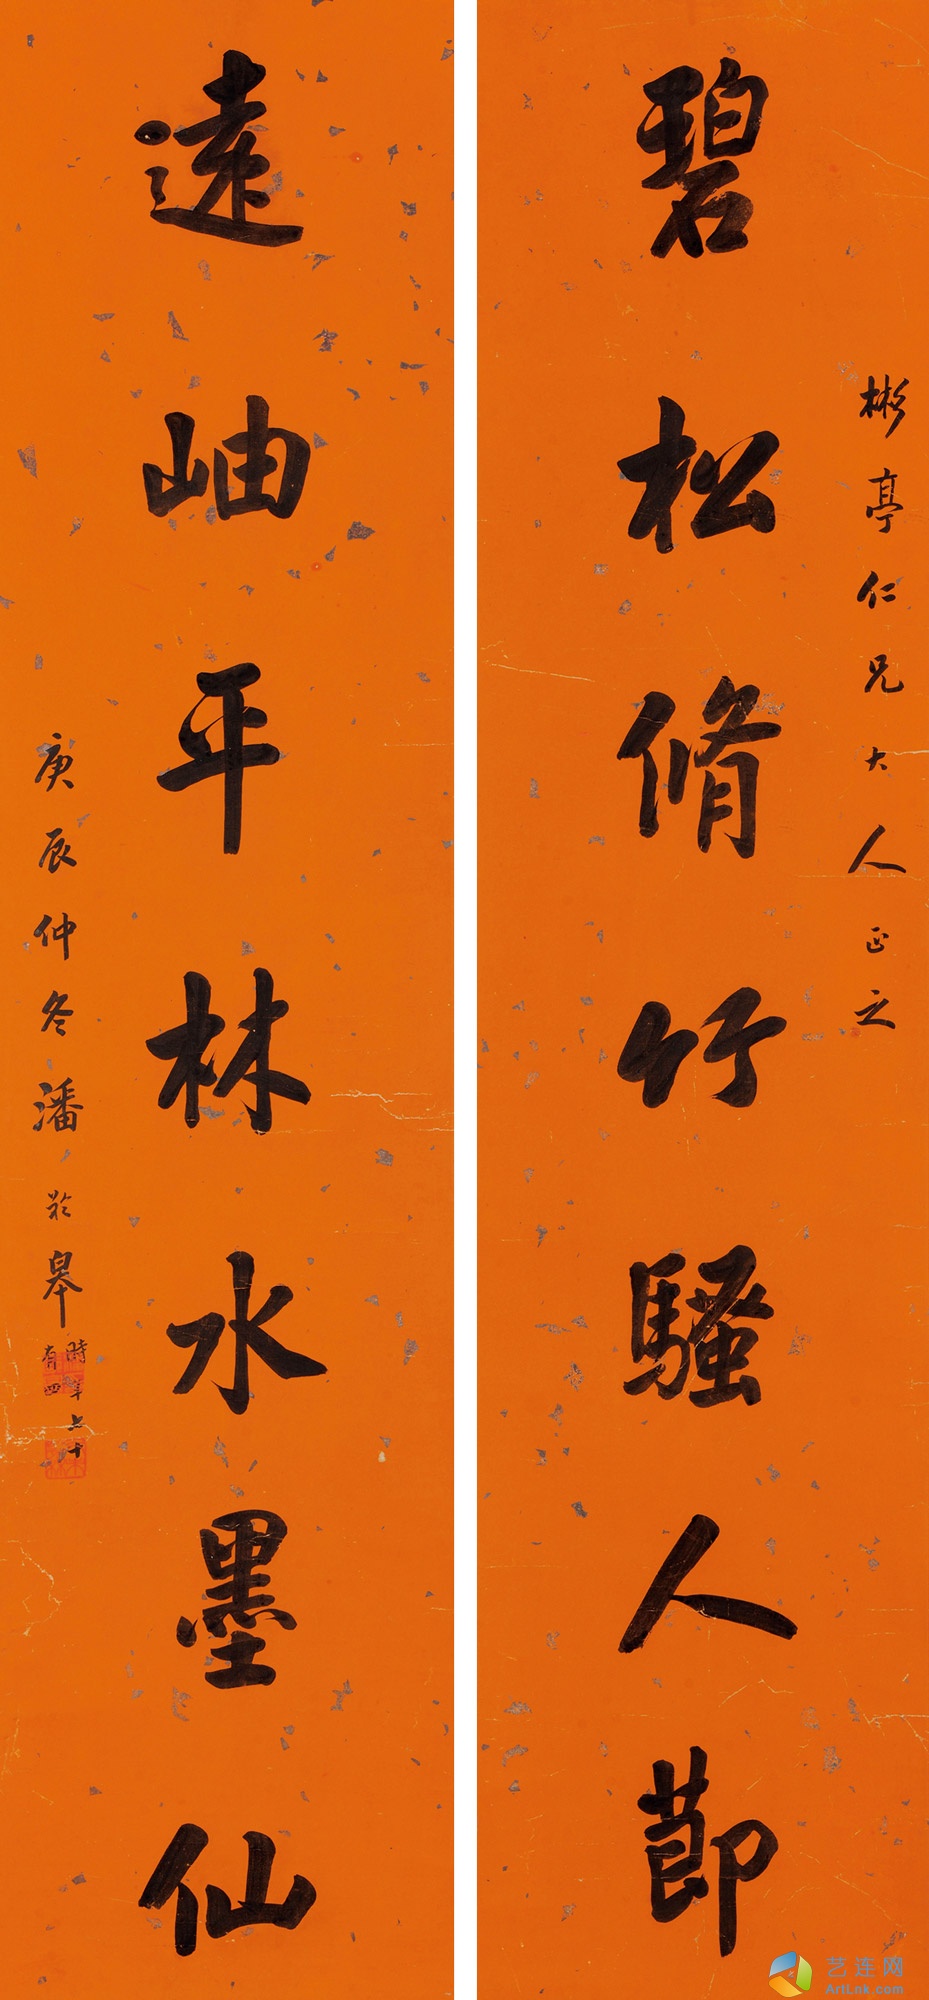 彬亭仁兄大人正之
碧松脩竹騷人節
遠岫平林水墨仙
庚辰仲冬潘於皋
時年七十
有四
艺连网
ArtLnk.com